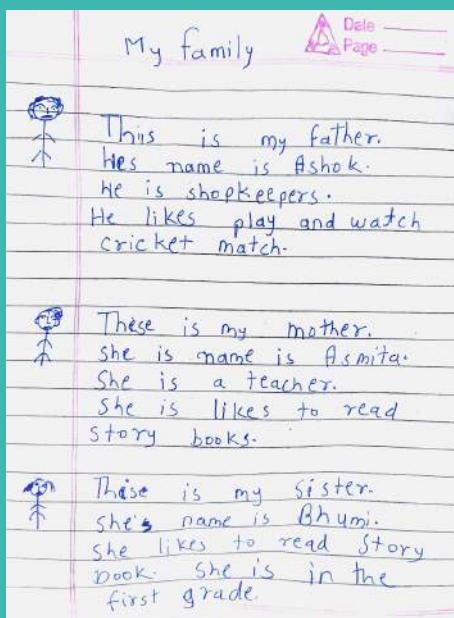 Date
Page
My family
Thiis is my father.
Hes name is Ashok.
He is shopkeepers.
He likes play and watch
cricket match.
These is my mother.
she is name is Asmita.
She is a teacher.
She is likes to read
story books.
These is my sister.
she's name is Bhumi.
she likes to read story
book. she is in the
first grade.